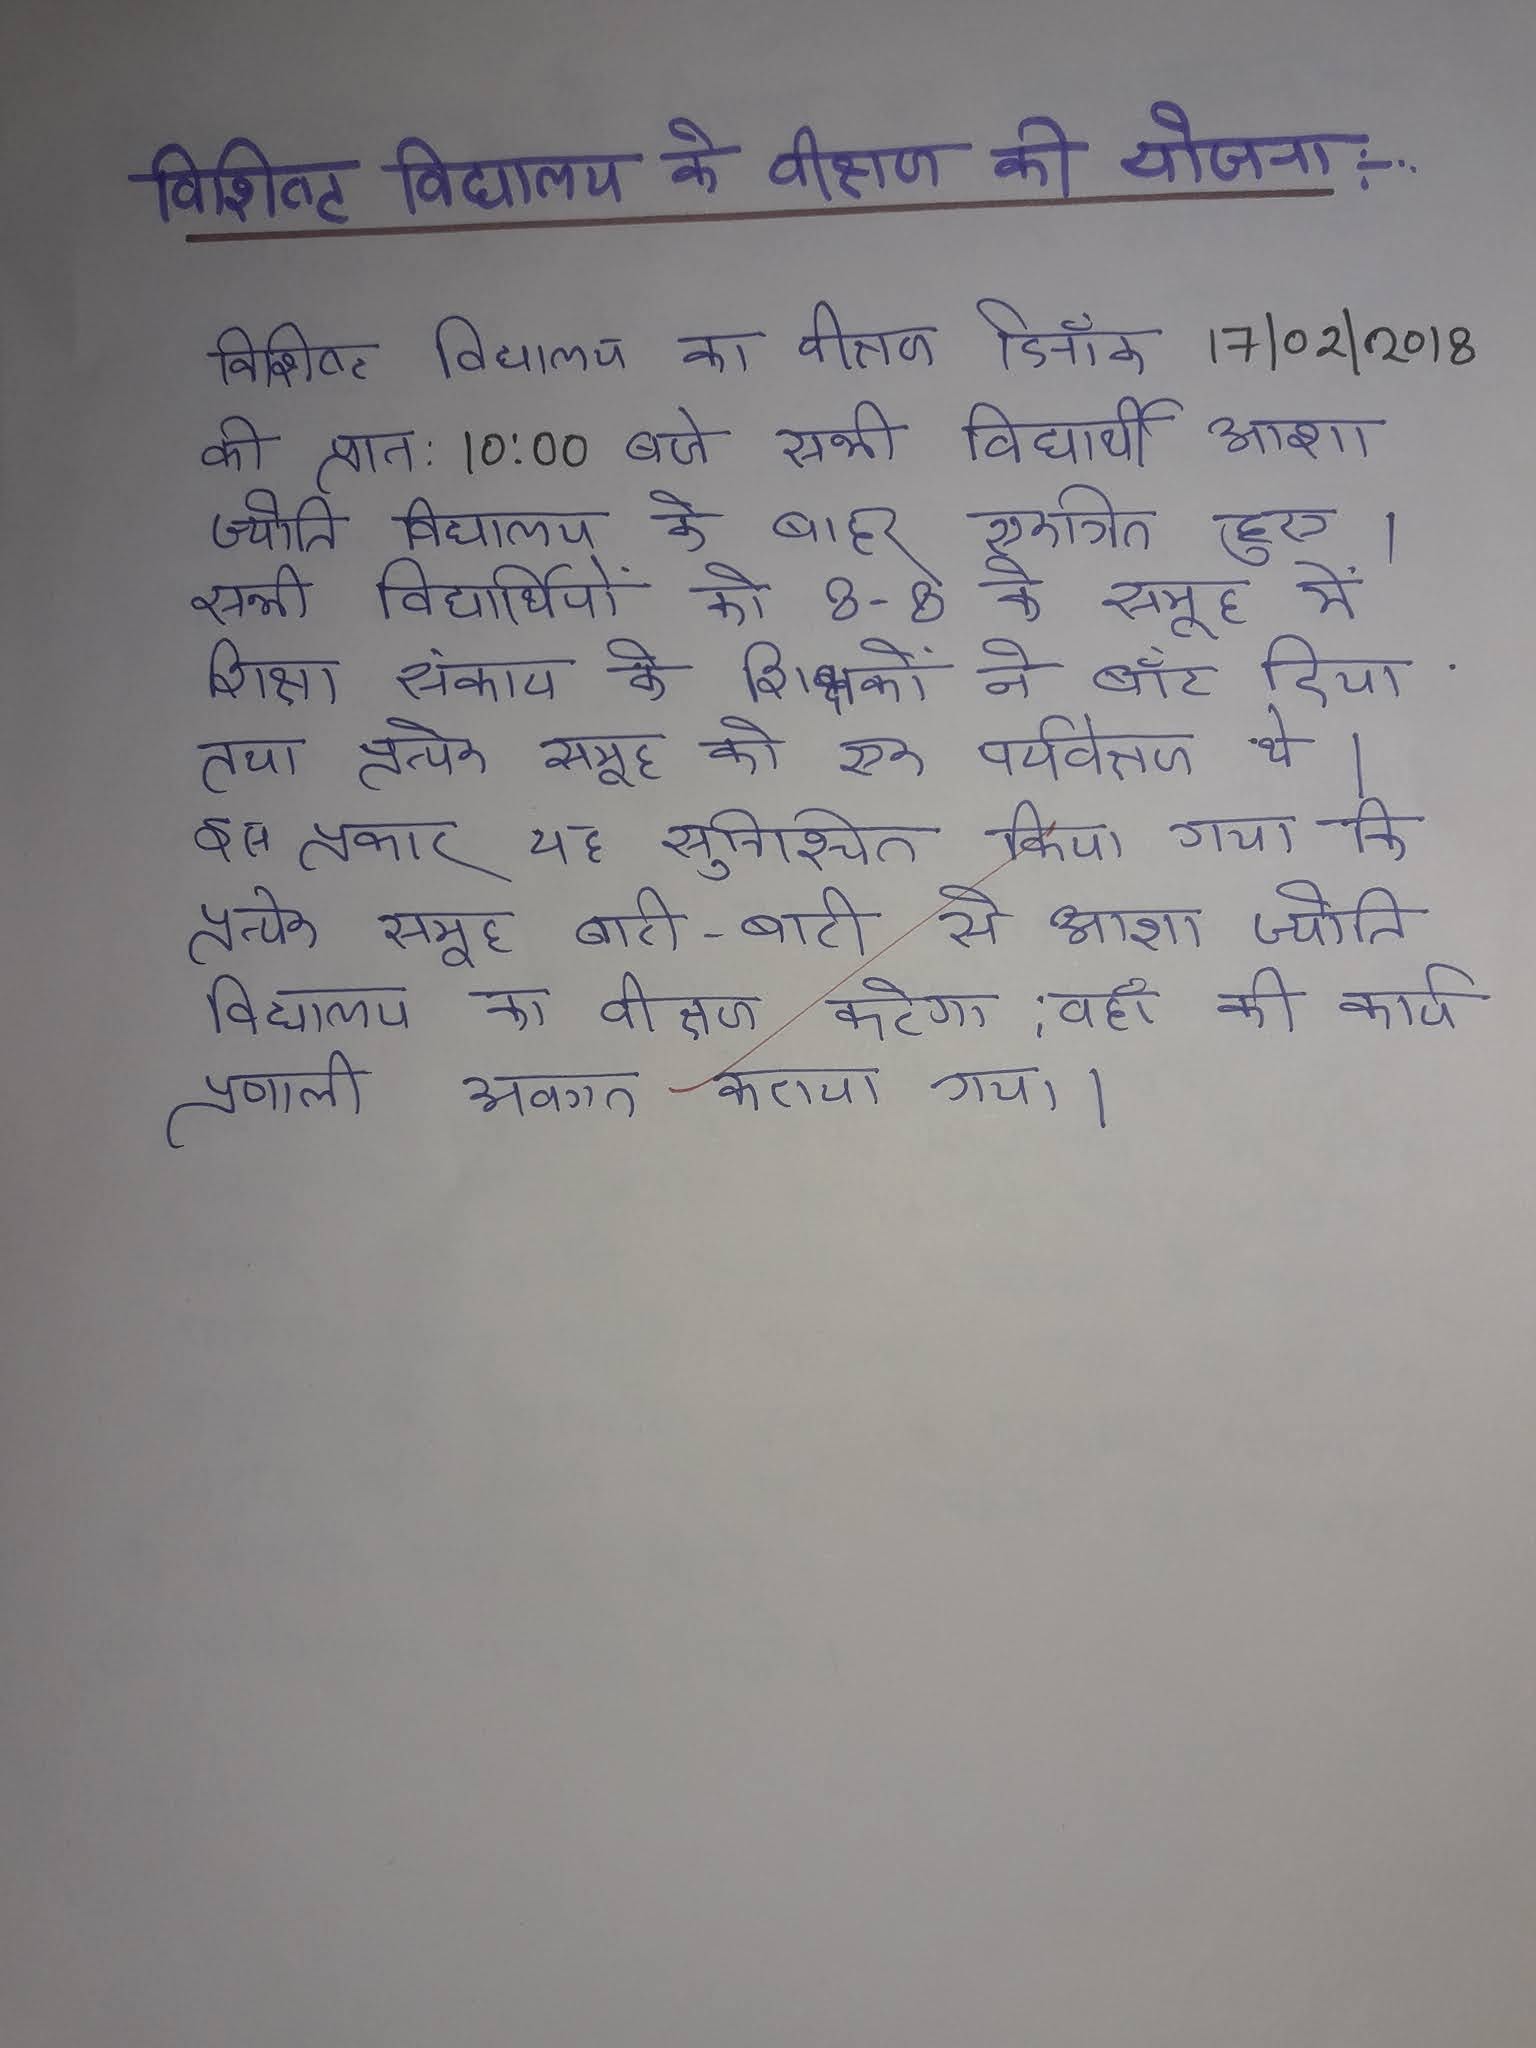 विशिष्ट विद्यालय के वीक्षण की योजना :-..
विशिष्ट विद्यालय का वीक्षण दिनाँक 17/02/2018
की प्रातः 10:00 बजे सभी विद्यार्थी आशा
ज्योति विद्यालय के बाहर एकत्रित हुए ।
सभी विद्यार्थियों को 8-8 के समूह में
शिक्षा संकाय के शिक्षकों ने बाँट दिया
तथा प्रत्येक समूह को एक पर्यवेक्षण थे ।
इस प्रकार यह सुनिश्चित किया गया कि
प्रत्येक समूह बारी-बारी से आशा ज्योति
विद्यालय का वीक्षण करेगा ; वहाँ की कार्य
प्रणाली अवगत कराया गया ।